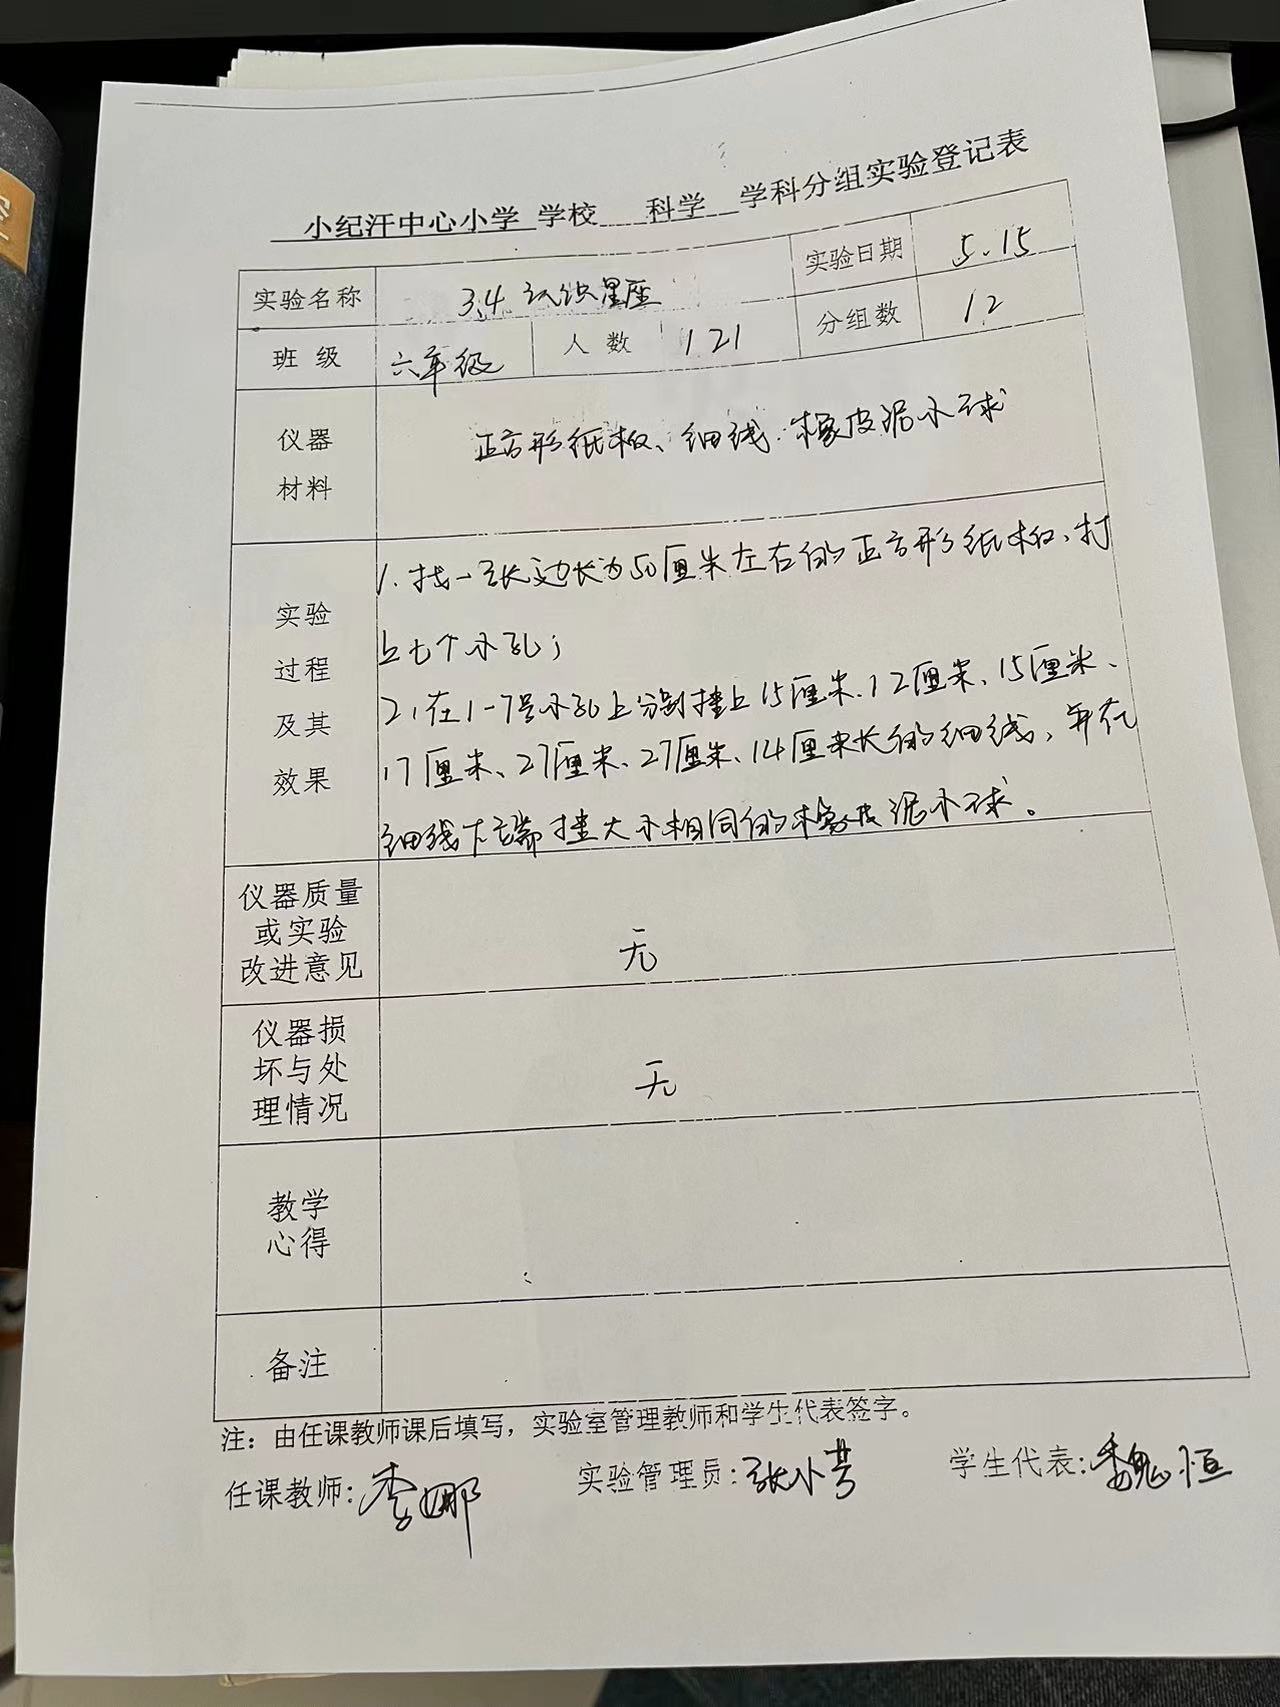 小纪汗中心小学 学校 科学 学科分组实验登记表
实验名称 3.4 认识星座 实验日期 5.15
班级 六年级 人数 121 分组数 12
仪器
材料
正方形纸板、细线、橡皮泥小球
实验
过程
及其
效果
1. 找一张边长为50厘米左右的正方形纸板、打
上七个小孔；
2、在1-7号小孔上分别挂上15厘米、12厘米、15厘米、
17厘米、27厘米、27厘米、14厘米长的细线、并在
细线下端挂大小相同的橡皮泥小球。
仪器质量
或实验
改进意见
无
仪器损
坏与处
理情况
无
教学
心得
备注
注：由任课教师课后填写，实验室管理教师和学生代表签字。
任课教师：李娜 实验管理员：张小芳 学生代表：魏恒